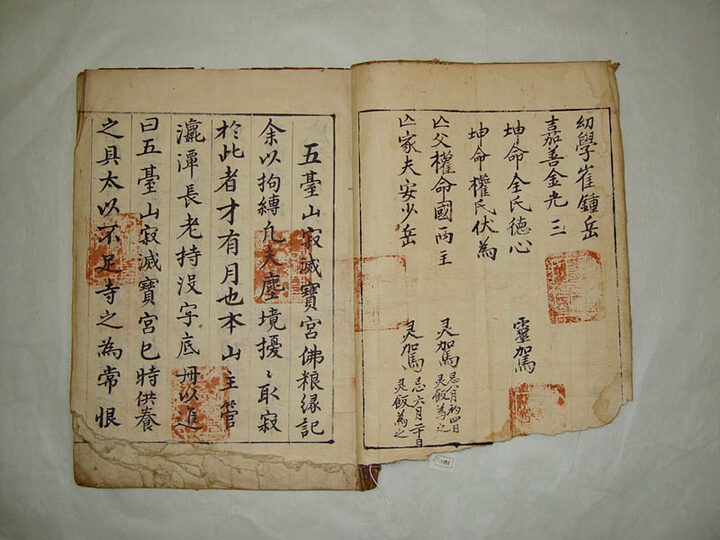 幼學崔鍾岳
嘉善金允三
坤命全氏德心 靈加駕
坤命權氏伏為
亾父權命國両主 灵加駕 忌八月初四日 灵飯為之
亾家夫安少岳 灵加駕 忌六月二十日 灵飯為之
五臺山寂滅寶宮佛粮縁記
余以拘縛凢夫塵境擾〻取寂
於此者才有月也本山主管
瀛潭長老持没字底冊以進
曰五臺山寂滅寶宮巳時供養
之具太以不足寺之為常恨